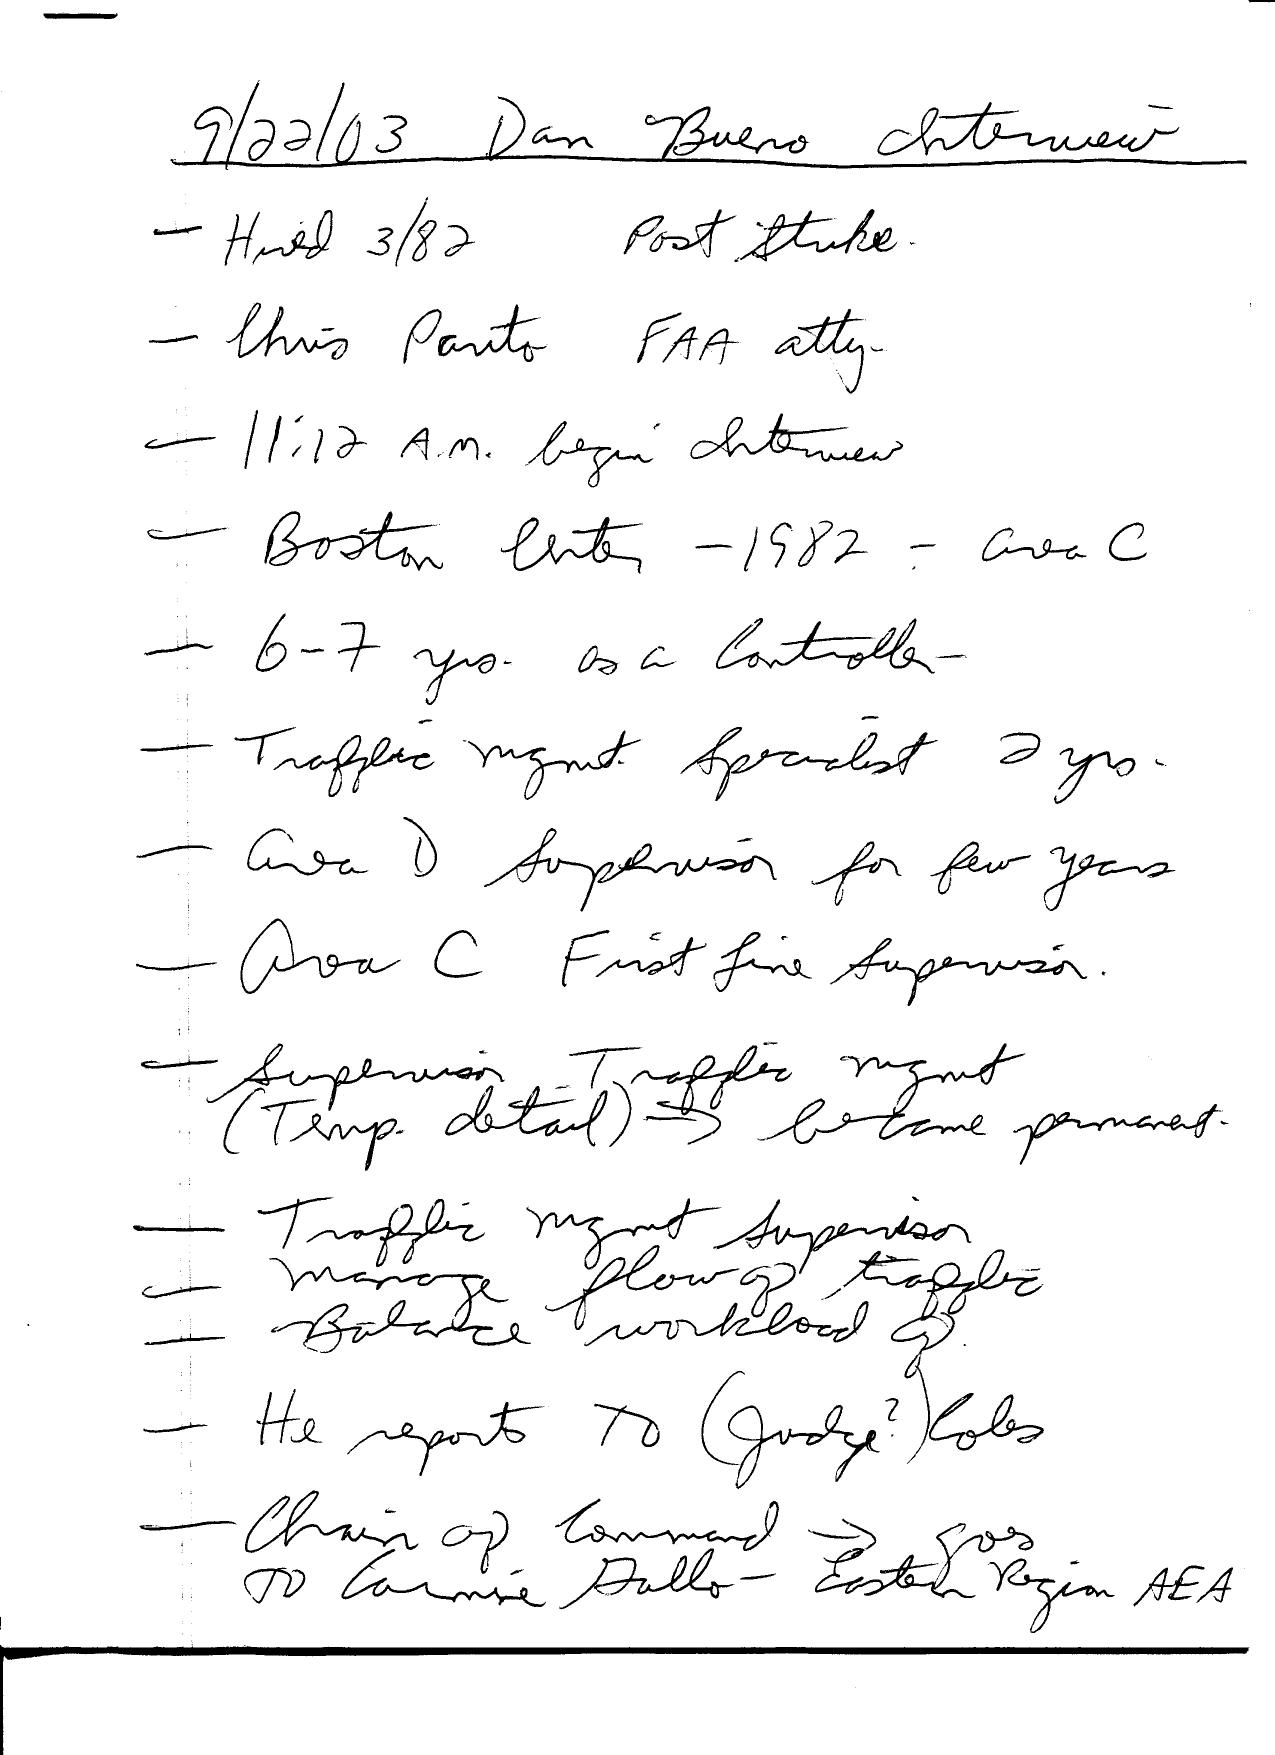 9/22/03 Dan Bueno Interview
- Hired 3/82 Post Strike.
- Chris Panto FAA atty.
- 11:12 A.M. begin Interview
- Boston Center - 1982 - Area C
- 6-7 yrs. as a Controller -
- Traffic mgmt. Specialist 2 yrs.
- Area D Supervisor for few years
- Area C First Line Supervisor.
- Supervisor Traffic mgmt
(Temp. detail) → became permanent.
- Traffic mgmt Supervisor
- manage flow of traffic
- Balance workload of
- He reports to (Judge?) Coles
- Chain of Command → goes
to Carmine Gallo - Eastern Region AEA